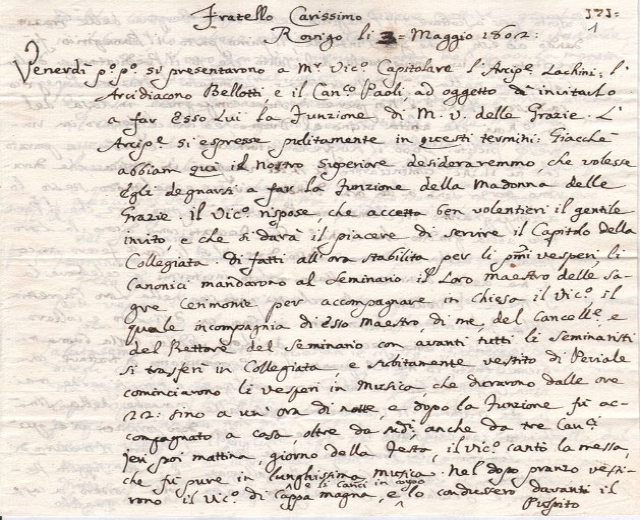 Fratello Carissimo
171=
1
Rovigo li 3= Maggio 1802:
Venerdì p.º p.º si presentarono a M.r Vic.º Capitolare l'Arcip.e Lachini: l'
Arcidiacono Bellotti e il Can.co Paoli ad oggetto di invitarlo
a far Esso Lui la Funzione di M. V. delle Grazie. L'
Arcip.e si espresse pulitamente in questi termini: Giacchè
abbiam quà il Nostro Superiore desideraremmo, che volesse
Egli degnarsi a far la Funzione della Madonna delle
Grazie. Il Vic.º rispose, che accetta ben volentieri il gentile
invito, e che si darà il piacere di servire il Capitolo della
Collegiata. Di fatti all'ora stabilita per li p.mi vesperi, li
Canonici mandarono al Seminario il Loro maestro delle sa=
gre Cerimonie per accompagnare in Chiesa il Vic.º, il
quale incompagnia di Esso Maestro, di me, del Cancell.e e
del Rettore del Seminario con avanti tutti li Seminaristi
si trasferì in Collegiata, e subitamente vestito di Piviale
cominciarono li vesperi in Musica, che durarono dalle ore
22: sino a un'ora di notte, e dopo la Funzione fù ac=
compagnato a casa, oltre da sud.i, anche da tre Can.ci
jeri poi mattina, giorno della Festa, il Vic.º cantò la messa,
che fù pure in lunghissima musica. Nel dopo pranzo vesti=
e li Can.ci in corpo
rono il Vic.º di Cappa magna, e lo condussero davanti il
Pulpito